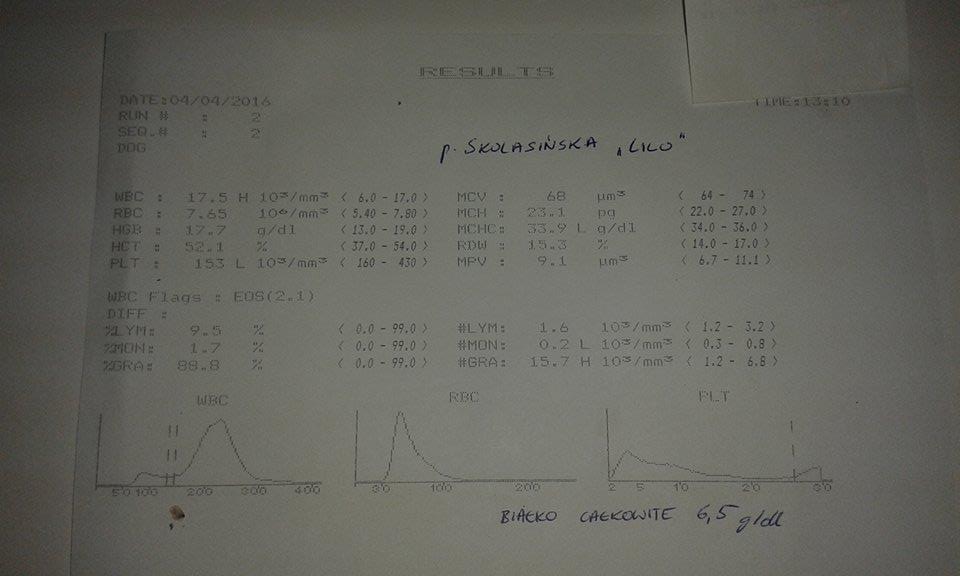 RESULTS
DATE:04/04/2016 TIME:13:10
RUN # : 2
SEQ.# : 2
DOG
p. SKOLASIŃSKA „LILO"
WBC : 17.5 H 10³/mm³ ( 6.0 - 17.0 ) MCV : 68 µm³ ( 64 - 74 )
RBC : 7.65 10⁶/mm³ ( 5.40 - 7.80 ) MCH : 23.1 pg ( 22.0 - 27.0 )
HGB : 17.7 g/dl ( 13.0 - 19.0 ) MCHC: 33.9 L g/dl ( 34.0 - 36.0 )
HCT : 52.1 % ( 37.0 - 54.0 ) RDW : 15.3 % ( 14.0 - 17.0 )
PLT : 153 L 10³/mm³ ( 160 - 430 ) MPV : 9.1 µm³ ( 6.7 - 11.1 )
WBC Flags : EOS(2.1)
DIFF :
%LYM: 9.5 % ( 0.0 - 99.0 ) #LYM: 1.6 10³/mm³ ( 1.2 - 3.2 )
%MON: 1.7 % ( 0.0 - 99.0 ) #MON: 0.2 L 10³/mm³ ( 0.3 - 0.8 )
%GRA: 88.8 % ( 0.0 - 99.0 ) #GRA: 15.7 H 10³/mm³ ( 1.2 - 6.8 )
WBC RBC PLT
50 100 200 300 400 30 100 200 2 5 10 20 30
BIAŁKO CAŁKOWITE 6,5 g/dl